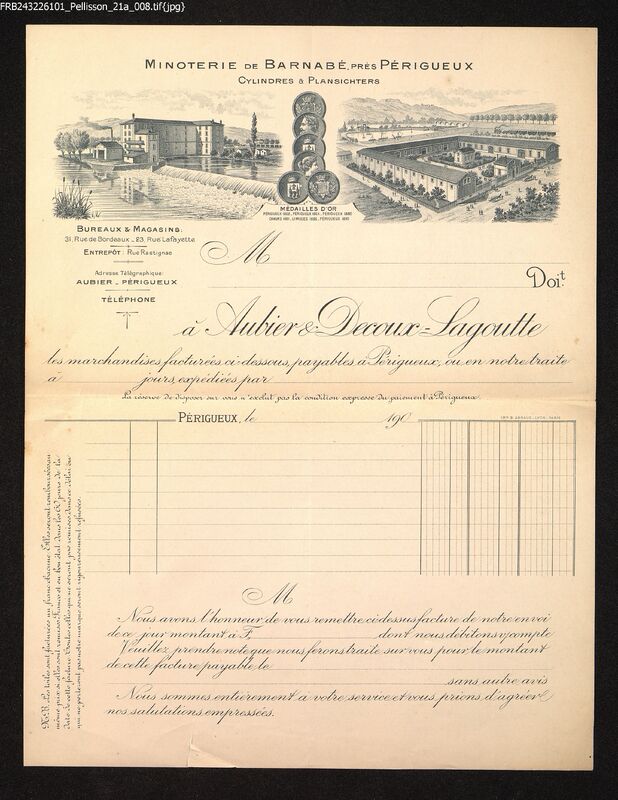 FRB243226101_Pellisson_21a_008.tif{jpg}
MINOTERIE DE BARNABÉ, PRÈS PÉRIGUEUX
CYLINDRES & PLANSICHTERS
MÉDAILLES D'OR
BUREAUX & MAGASINS:
31, Rue de Bordeaux _ 23, Rue Lafayette
ENTREPÔT: Rue Rastignac
Adresse Télégraphique:
AUBIER _ PÉRIGUEUX
TÉLÉPHONE
M
Doit.
à Aubier & Decoux-Lagoutte
les marchandises facturées ci-dessous, payables à Périgueux, ou en notre traite
à jours, expédiées par
La réserve de disposer sur vous n'exclut pas la condition expresse du paiement à Périgueux.
PÉRIGUEUX, le 190
N.B. Les toiles sont facturées un franc chacune. Elles seront remboursées au
même prix si elles sont rendues Franco et en bon état dans les 60 jours de la
date de cette facture. Toutes celles qui ne seront pas rendues dans ce délai ou
qui ne porteront pas notre marque seront rigoureusement refusées.
M
Nous avons l'honneur de vous remettre ci-dessus facture de notre envoi
de ce jour montant à F. dont nous débitons v/compte
Veuillez prendre note que nous ferons traite sur vous pour le montant
de cette facture payable le
sans autre avis
Nous sommes entièrement à votre service et vous prions d'agréer
nos salutations empressées.